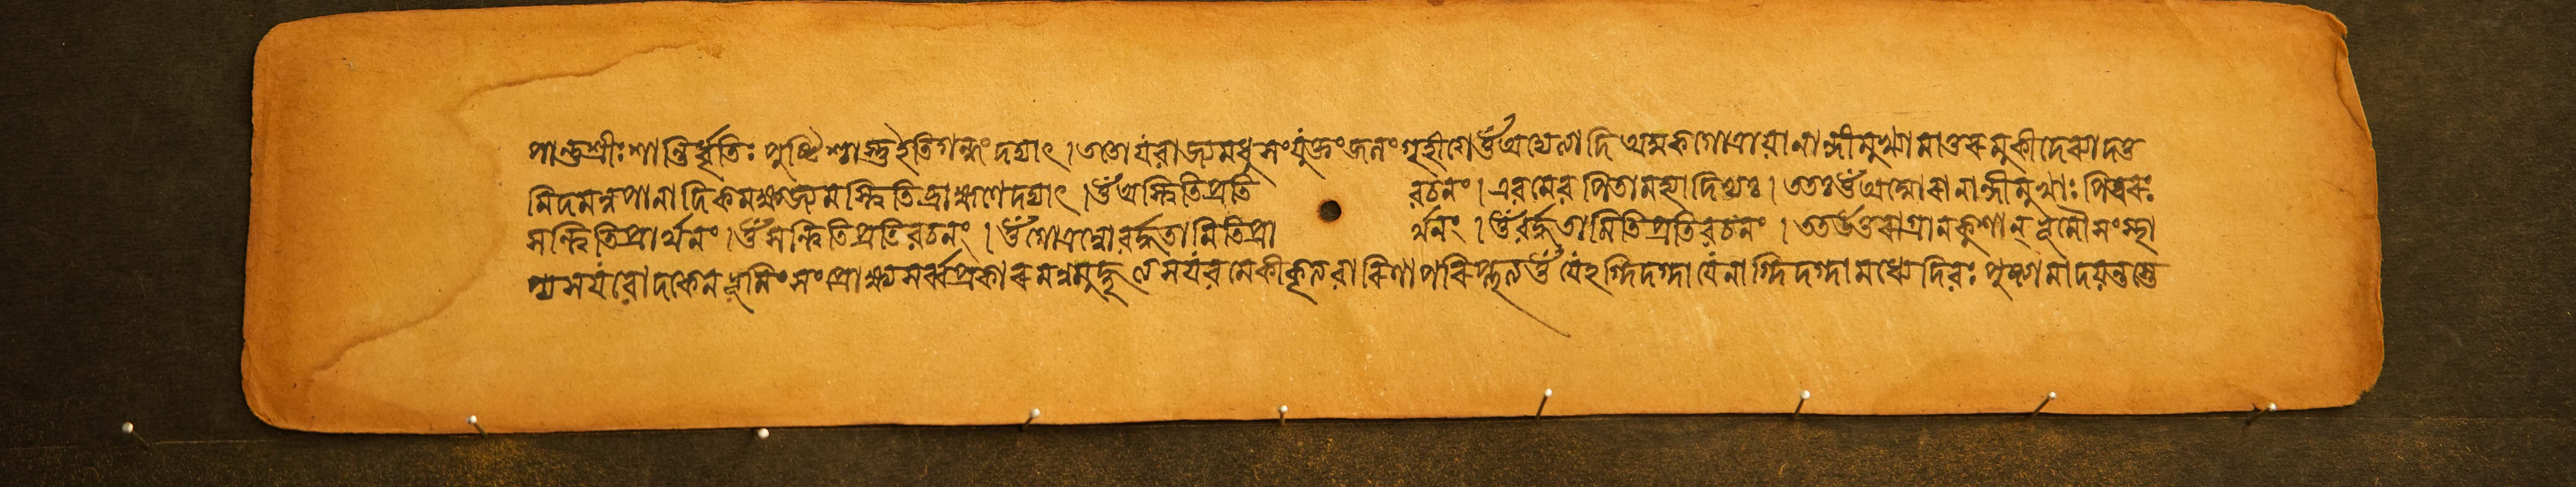 পান্তুশ্রীঃশান্তির্ধৃতিঃ পুষ্টিশ্চাস্তুইতিগন্ধং দদ্যাৎ।ততোযবাজ্যমধুসংযুক্তংজলংগৃহীত্বাওঁঅদ্যেত্যাদি অমুকগোত্রাযানান্দীমুখ্যামাতুরমুকীদেব্যাদত্ত
মিদমন্নপানাদিকমক্ষয্যমস্ত্বিতিব্রাহ্মণেদদ্যাৎ।ওঁঅস্ত্বিতিপ্রতি বচনং।এবমেব পিতামহ্যাদিভ্যঃ।ততঃওঁঅঘোরানান্দীমুখাঃ পিতরঃ
সন্ত্বিতিপ্রার্থনং।ওঁসন্ত্বিতিপ্রতিবচনং।ওঁগোত্রন্নোবর্দ্ধতামিতিপ্রা র্থনং।ওঁবর্দ্ধতামিতিপ্রতিবচনং।ততউত্তরাগ্রানকুশান্ ভূমৌসংস্থা
প্যসযবোদকেনভূমিংসংপ্রোক্ষ্যসর্ব্বপ্রকারমন্নমুদ্ধৃত্যসযবমেকীকৃত্যবারিণাপরিপ্লুত্যওঁযেঽগ্নিদগ্ধাযেনাগ্নিদগ্ধামধ্যেদিবঃ